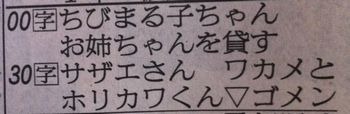 00字ちびまる子ちゃん
お姉ちゃんを貸す
30字サザエさん　ワカメと
ホリカワくん▽ゴメン